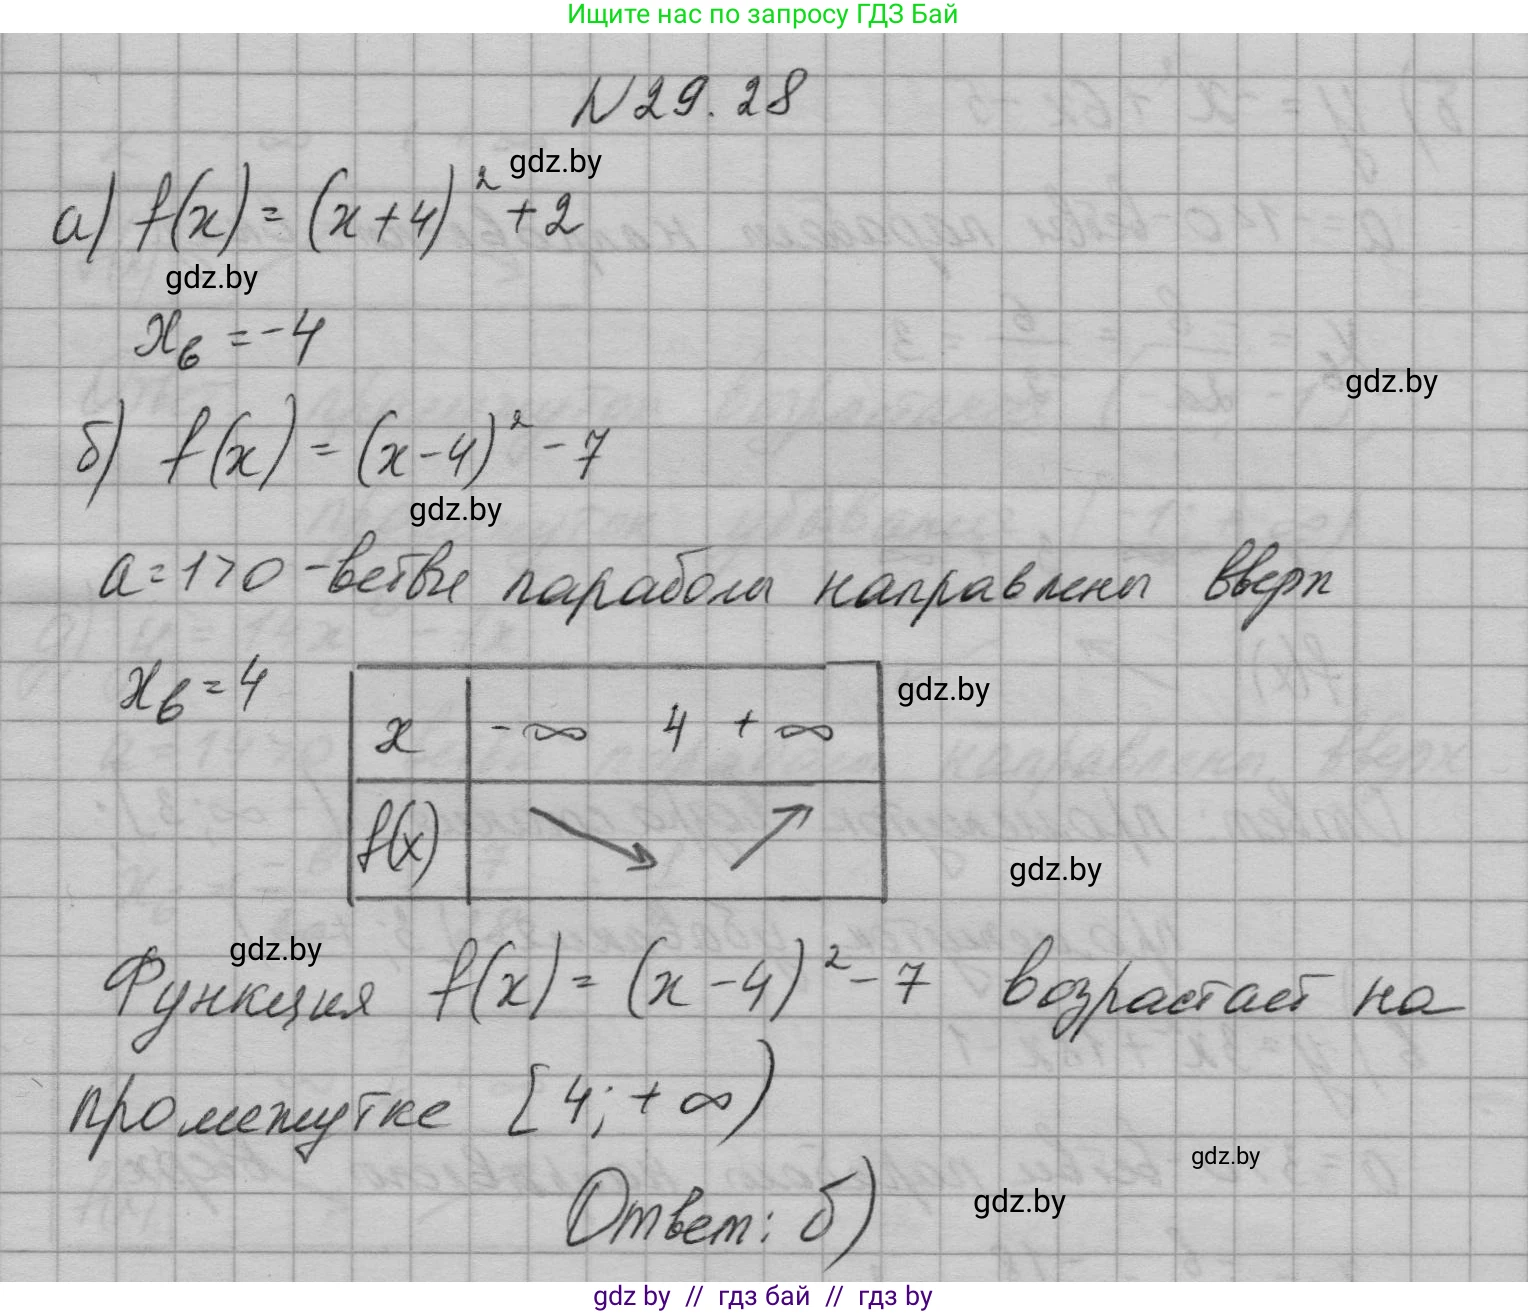 Ищите нас по запросу ГДЗ Бай
N 29.28
gdz.by
а) f(x) = (x+4)² + 2
gdz.by
xв = -4
gdz.by
б) f(x) = (x-4)² - 7
gdz.by
a=1>0 - ветви параболы направлены вверх
xв = 4
gdz.by
x -∞ 4 +∞
f(x) ↘ ↗
gdz.by
gdz.by
Функция f(x) = (x-4)² - 7 возрастает на
промежутке [4; +∞)
gdz.by
gdz.by
Ответ: б)
gdz.by // гдз бай // гдз by